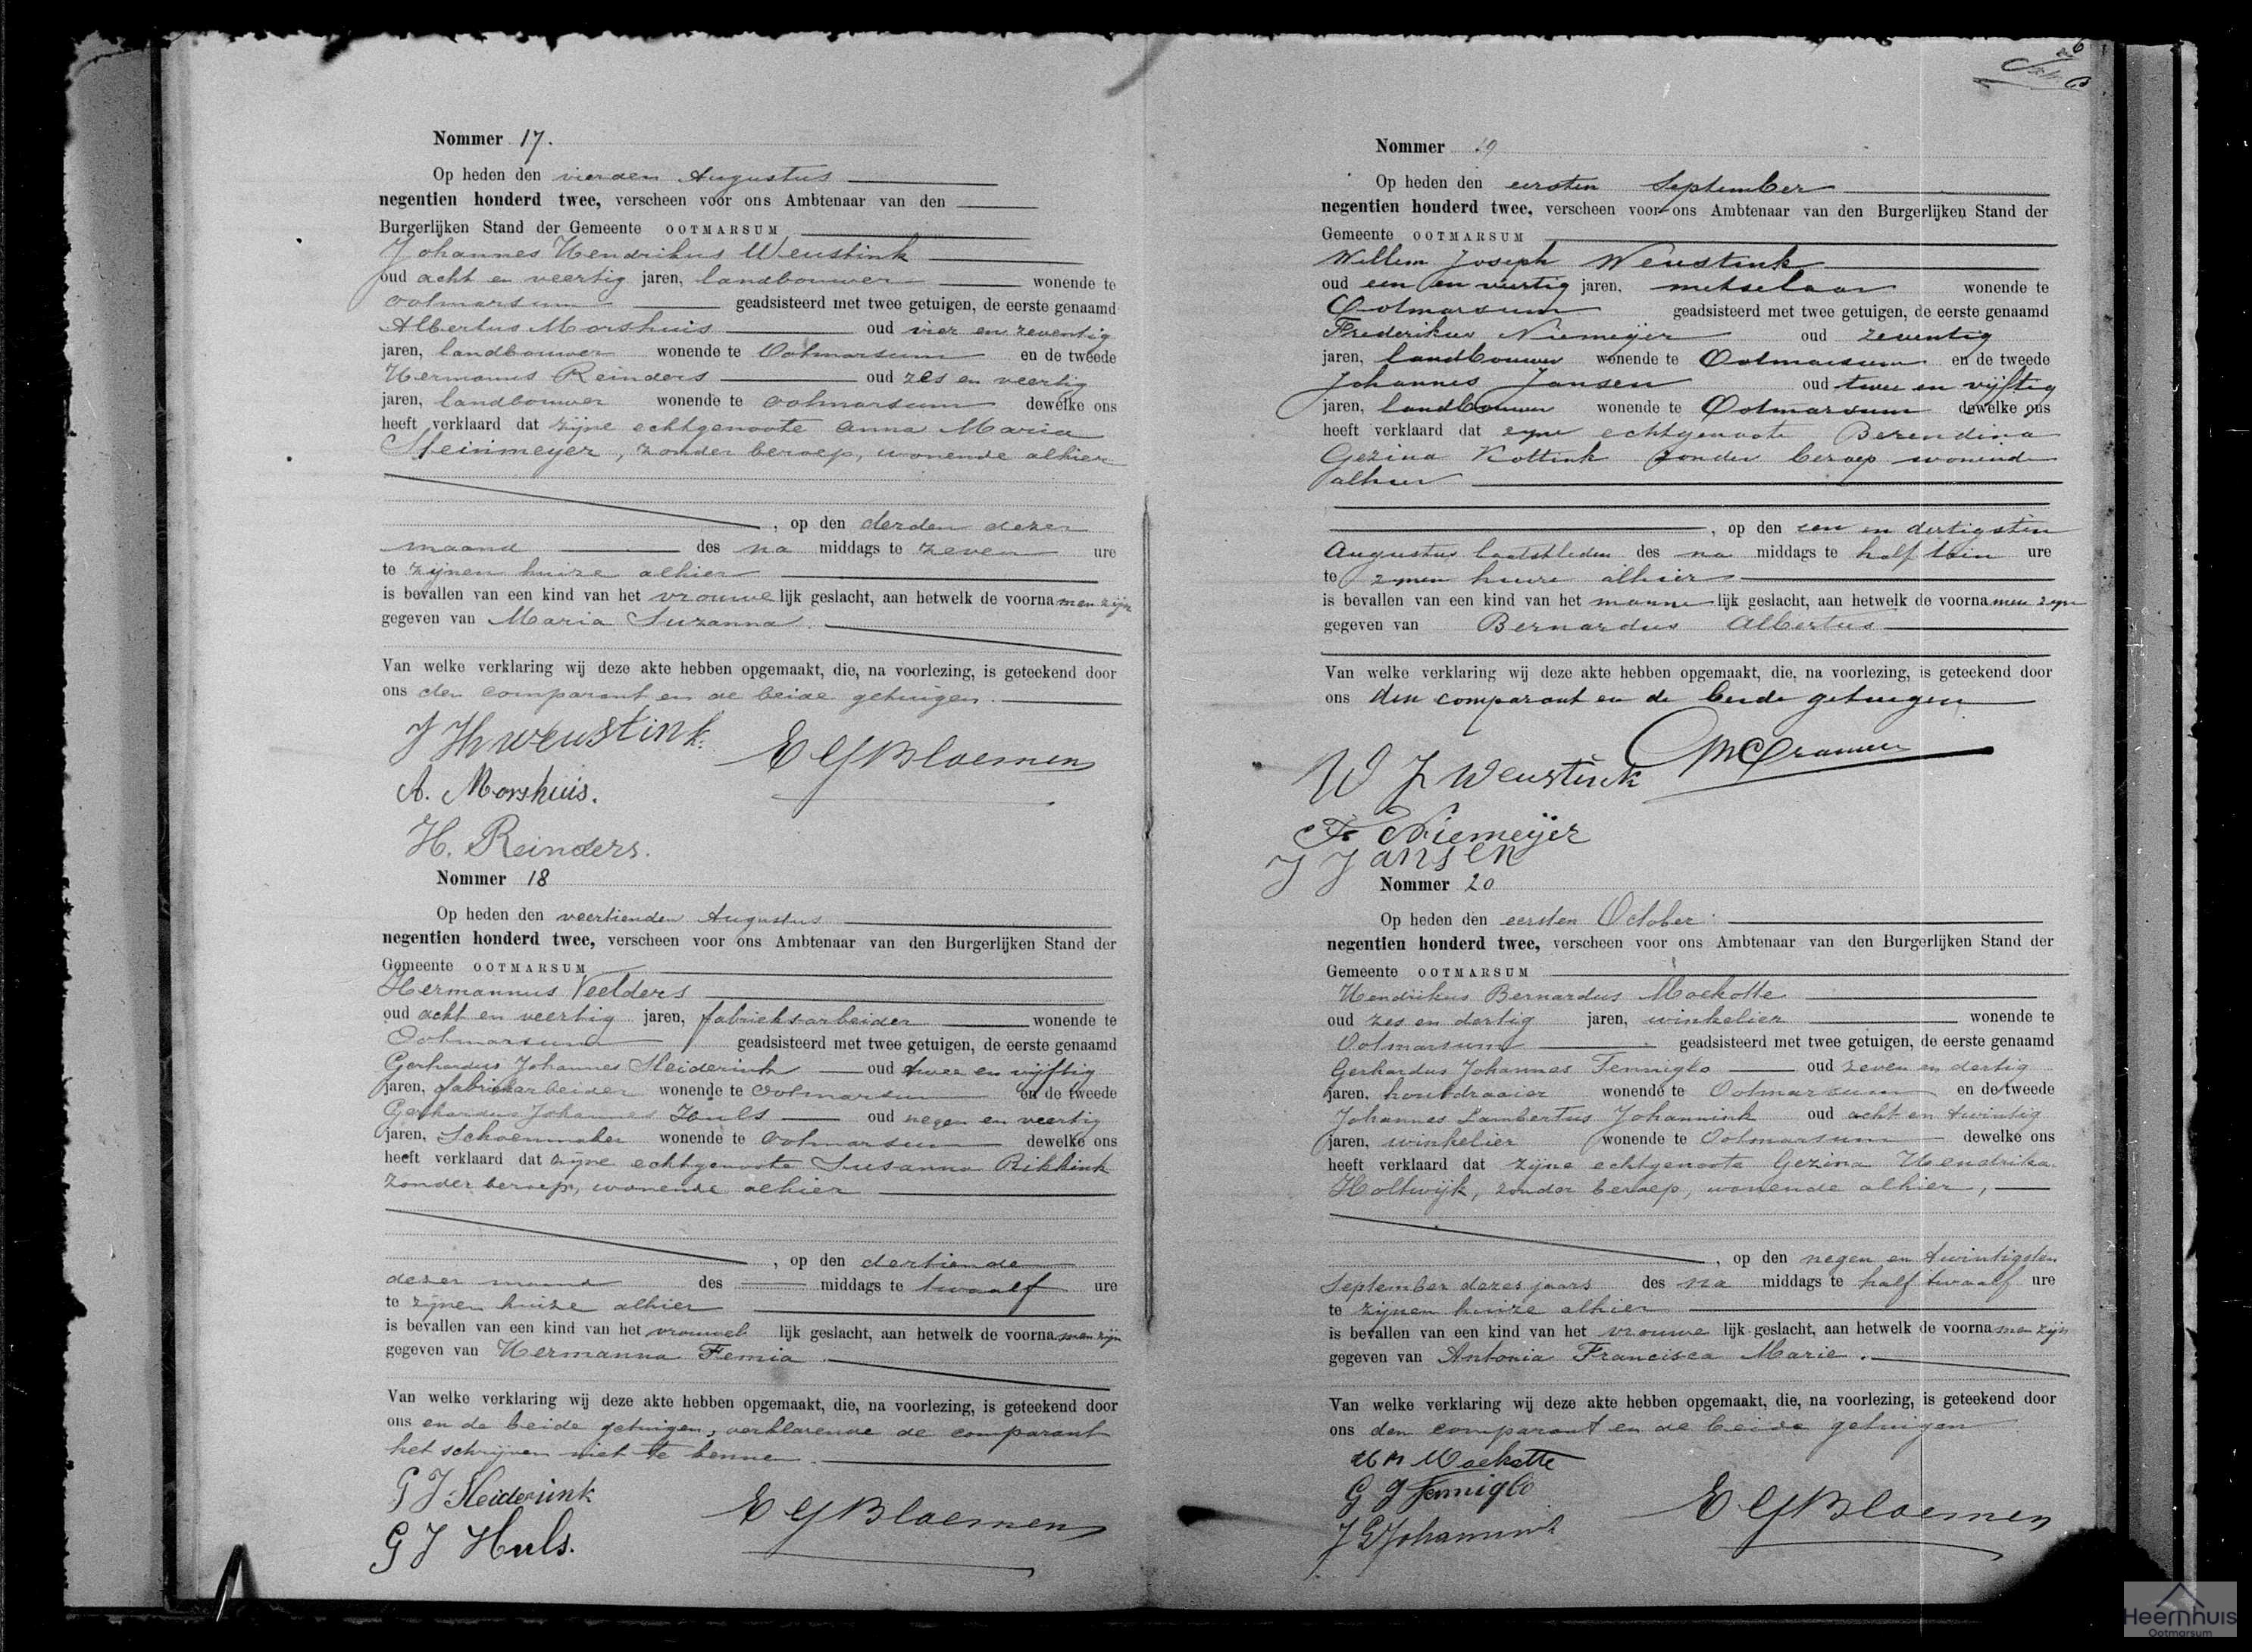 Nommer 17.
Op heden den vierden Augustus
negentien honderd twee, verscheen voor ons Ambtenaar van den
Burgerlijken Stand der Gemeente OOTMARSUM
Johannes Hendrikus Weustink
oud acht en veertig jaren, landbouwer wonende te
Ootmarsum geadsisteerd met twee getuigen, de eerste genaamd
Albertus Morshuis oud vier en zeventig
jaren, landbouwer wonende te Ootmarsum en de tweede
Hermanus Reinders oud zes en veertig
jaren, landbouwer wonende te Ootmarsum dewelke ons
heeft verklaard dat zijne echtgenoote Anna Maria
Steinmeyer, zonder beroep, wonende alhier
, op den derden dezer
maand des na middags te zeven ure
te zijnen huize alhier
is bevallen van een kind van het vrouwe lijk geslacht, aan hetwelk de voorna men zijn
gegeven van Maria Suzanna.
Van welke verklaring wij deze akte hebben opgemaakt, die, na voorlezing, is geteekend door
ons den comparant en de beide getuigen.
J H Weustink.
E G Bloemen
A. Morshuis.
H. Reinders.
Nommer 18
Op heden den veertienden Augustus
negentien honderd twee, verscheen voor ons Ambtenaar van den Burgerlijken Stand der
Gemeente OOTMARSUM
Hermannus Veelders
oud acht en veertig jaren, fabrieksarbeider wonende te
Ootmarsum geadsisteerd met twee getuigen, de eerste genaamd
Gerhardus Johannes Sleiderink oud twee en vijftig
jaren, fabriekarbeider wonende te Ootmarsum en de tweede
Gerhardus Johannes Huls oud negen en veertig
jaren, Schoenmaker wonende te Ootmarsum dewelke ons
heeft verklaard dat zijne echtgenoote Susanna Rikkink
zonder beroep, wonende alhier
, op den dertiende
dezer maand des middags te twaalf ure
te zijnen huize alhier
is bevallen van een kind van het vrouwel lijk geslacht, aan hetwelk de voorna men zijn
gegeven van Hermanna Femia.
Van welke verklaring wij deze akte hebben opgemaakt, die, na voorlezing, is geteekend door
ons en de beide getuigen, verklarende de comparant
het schrijven niet te kennen.
G J Sleiderink
E G Bloemen
G J Huls.
Nommer 19
Op heden den eersten September
negentien honderd twee, verscheen voor ons Ambtenaar van den Burgerlijken Stand der
Gemeente OOTMARSUM
Willem Joseph Weustink
oud een en veertig jaren, metselaar wonende te
Ootmarsum geadsisteerd met twee getuigen, de eerste genaamd
Frederikus Niemeijer oud zeventig
jaren, landbouwer wonende te Ootmarsum en de tweede
Johannes Jansen oud twee en vijftig
jaren, landbouwer wonende te Ootmarsum dewelke ons
heeft verklaard dat zijne echtgenoote Berendina
Gezina Kottink zonder beroep wonende
alhier
, op den een en dertigsten
Augustus laatstleden des na middags te half tein ure
te zijnen huize alhier
is bevallen van een kind van het manne lijk geslacht, aan hetwelk de voorna men zijn
gegeven van Bernardus Albertus
Van welke verklaring wij deze akte hebben opgemaakt, die, na voorlezing, is geteekend door
ons den comparant en de beide getuigen
W J Weustink
F Niemeijer
J Jansen
Nommer 20
Op heden den eersten October
negentien honderd twee, verscheen voor ons Ambtenaar van den Burgerlijken Stand der
Gemeente OOTMARSUM
Hendrikus Bernardus Moekotte
oud zes en dertig jaren, winkelier wonende te
Ootmarsum geadsisteerd met twee getuigen, de eerste genaamd
Gerhardus Johannes Fenniglo oud zeven en dertig
jaren, houtdraaier wonende te Ootmarsum en de tweede
Johannes Lambertus Johannink oud acht en twintig
jaren, winkelier wonende te Ootmarsum dewelke ons
heeft verklaard dat zijne echtgenoote Gezina Hendrika
Holtwijk, zonder beroep, wonende alhier,
, op den negen en twintigsten
September dezes jaars des na middags te half twaalf ure
te zijnen huize alhier
is bevallen van een kind van het vrouwe lijk geslacht, aan hetwelk de voorna men zijn
gegeven van Antonia Francisca Marie.
Van welke verklaring wij deze akte hebben opgemaakt, die, na voorlezing, is geteekend door
ons den comparant en de beide getuigen
Moekotte
G J Fenniglo
E G Bloemen
Johannink
Heernhuis
Ootmarsum